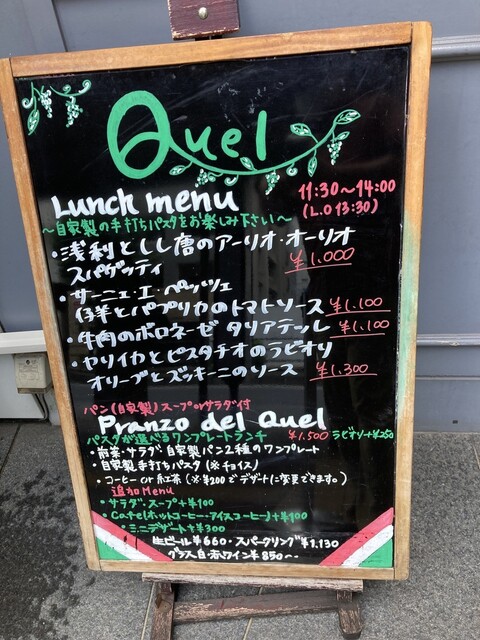 Quel
Lunch menu
11:30〜14:00
(L.O 13:30)
〜自家製の手打ちパスタをお楽しみ下さい〜
・浅利としし唐のアーリオ・オーリオ
スパゲッティ
¥1,000
・サーニェ・エ・ペッツェ
仔羊とパプリカのトマトソース ¥1,100
・牛肉のボロネーゼ タリアテッレ ¥1,100
・ヤリイカとピスタチオのラビオリ
オリーブとズッキーニのソース ¥1,300
パン(自家製)スープorサラダ付
Pranzo del Quel
パスタが選べるワンプレートランチ ¥1,500 ラビオリ+¥250
・前菜・サラダ 自家製パン2種のワンプレート
・自家製手打ちパスタ(※チョイス)
・コーヒー or 紅茶(※¥200でデザートに変更できます。)
追加Menu
・サラダ・スープ+¥100
・Cafe(ホットコーヒー・アイスコーヒー)+¥100
・ミニデザート+¥300
生ビール¥660・スパークリング¥1,130
グラス白・赤ワイン¥850〜